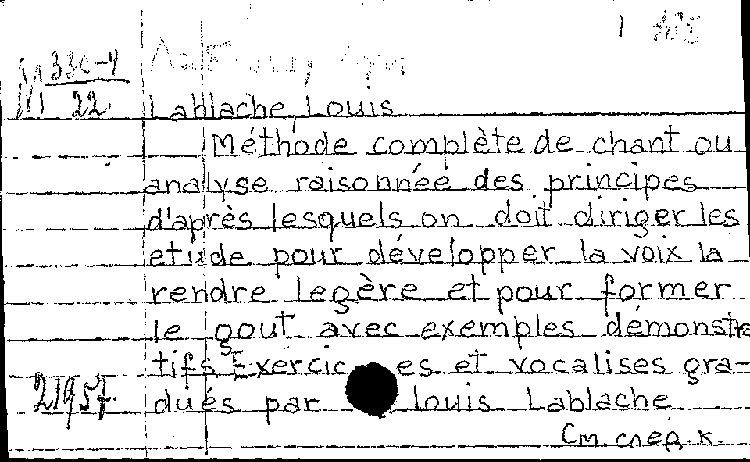 М 33c-4
22
Lablache, Louis
Méthode complète de chant ou
analyse raisonnée des principes
d'après lesquels on doit diriger les
etude pour développer la voix la
rendre legère et pour former
le gout avec exemples démonstra
tifs Exercices et vocalises gra-
dués par Louis Lablache
21957
См. след. к.